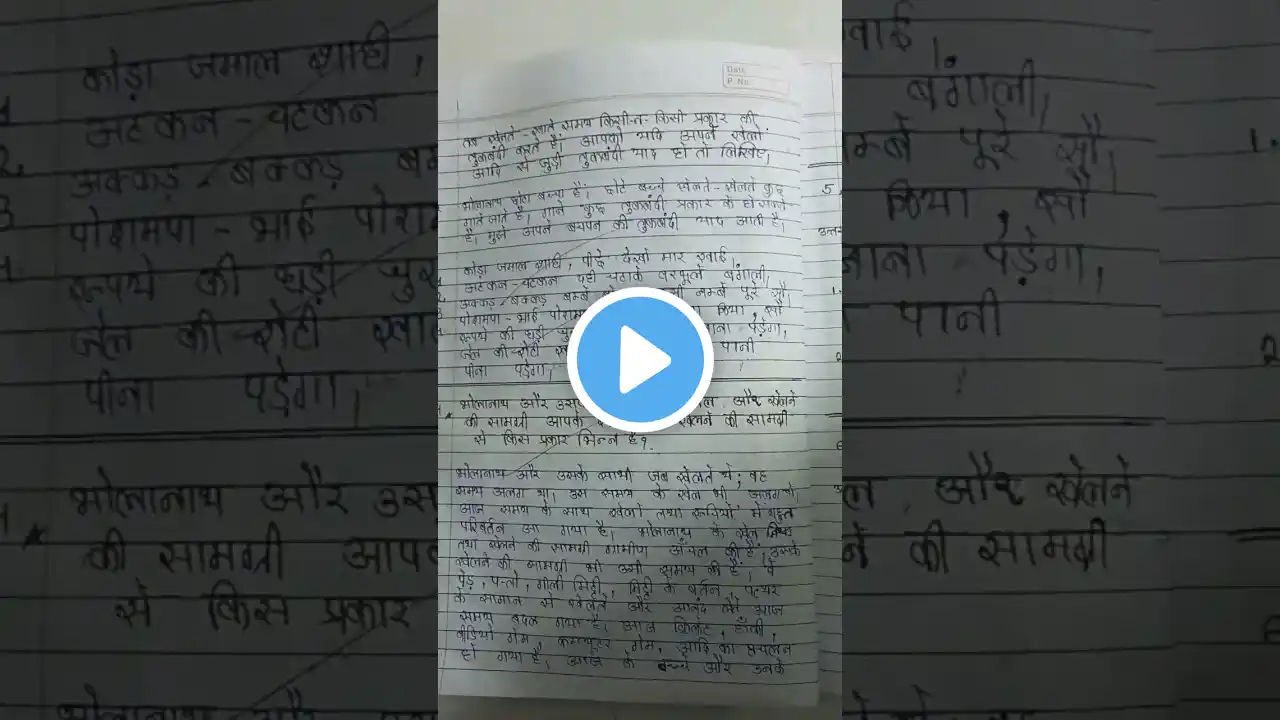 Date
P. No.
तब खेलते-खाते समय किसी-न-किसी प्रकार की
तुकबंदी करते हैं। आपको यदि अपने खेलों
आदि से जुड़ी तुकबंदी याद हो तो लिखिए।
बच्चा है। छोटे बच्चे खेलते-खेलते कुछ
गाने गाते है। गाने कुछ तुकबंदी प्रकार के हो सकते
है। मुझे अपने बचपन की तुकबंदी याद आती है।
कोड़ा जमाल शाही, पीछे देखो मार खाई,
अटकन-चटकन दही चटाके वरफूले बंगाली,
अक्कड़-बक्कड़ बम्बे नब्बे पूरे सौ,
पोशमपा-भाई किया, सौ
रूपये की घड़ी पड़ेगा,
जेल की रोटी पानी
पीना पड़ेगा,
भोलानाथ और और खेलने
की सामग्री आपके खेलने की सामग्री
से किस प्रकार भिन्न है?
भोलानाथ और उसके साथी जब खेलते थे; वह
समय अलग था। उस समय के खेल भी अलग थे।
आज समय के साथ खेलों तथा रूढ़ियों में बहुत
परिवर्तन आ गया है। भोलानाथ के खेल
तथा खेलने की सामग्री ग्रामीण अँचल की है, उसके
खेलने की सामग्री भी उसी समय की है। वे
पेड़, पत्तो, गीली मिट्टी, मिट्टी के बर्तन, पत्थर
के सामान से खेलते और आनंद लेते आज
समय बदल गया है। आज क्रिकेट, हॉकी,
वीडियो गेम, कम्प्यूटर गेम, आदि का प्रचलन
हो गया है, आज के बच्चे और उनके